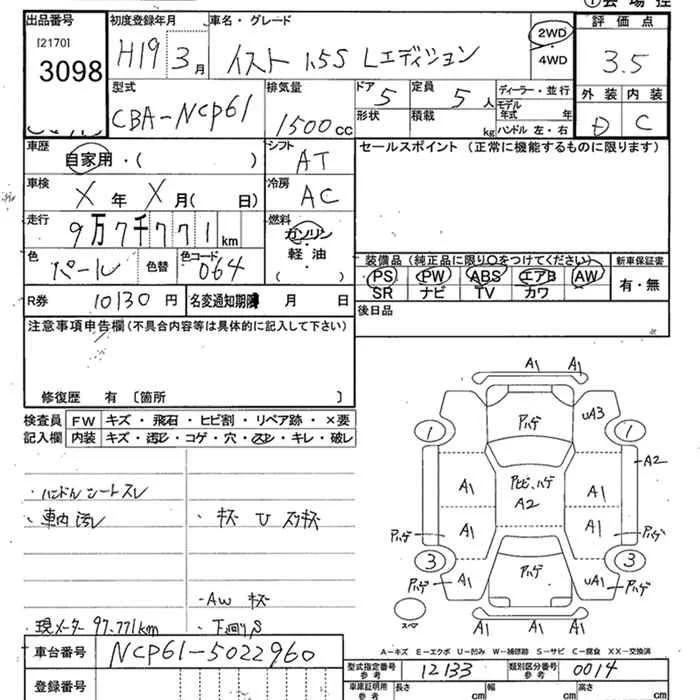 ①会場控
出品番号
[2170]
3098
初度登録年月
H19 3月
車名・グレード
イスト 1.5S Lエディション
2WD
・
4WD
評価点
3.5
外装 内装
D C
型式
CBA-NCP61
排気量
1500cc
ドア
5
定員
5人
形状
積載
kg
ディーラー・並行
モデル年式 年
ハンドル 左・右
車歴
自家用・( )
シフト
AT
セールスポイント (正常に機能するものに限ります)
車検
X 年 X 月( 日)
冷房
AC
走行
9万7千771km
燃料
ガソリン
軽・油
( )
色
パール
色替
色コード
064
装備品 (純正品に限り〇をつけてください)
PS PW ABS エアB AW
SR ナビ TV カワ
新車保証書
有・無
R券 10130円
名変通知期限 月 日
後日品
注意事項申告欄(不具合内容等は具体的に記入して下さい)
修復歴 有 〔箇所 〕
検査員記入欄
FW キズ・飛石・ヒビ割・リペア跡・×要
内装 キズ・汚レ・コゲ・穴・スレ・キレ・破レ
・ハンドル シートスレ
・車内汚レ
・キズ U スリキズ
・AW キズ
・現メーター97.771km
・下廻りS
A1 A1
Pハゲ
UA3
1
1
A2
A1
Pヒビ、ハゲ
A2
A1
A1
A1
Pハゲ
Pハゲ
3
3
Pハゲ
A1
Pハゲ
UA1
Pハゲ
スペア
A1 A1 A1
A-キズ E-エクボ U-凹み W-補修跡 S-サビ C-腐食 XX-交換済
車台番号
NCP61-5022960
型式指定番号
参考
12133
類別区分番号
参考
0014
登録番号
車庫証明用
参考
長さ
cm
幅
cm
高さ
cm